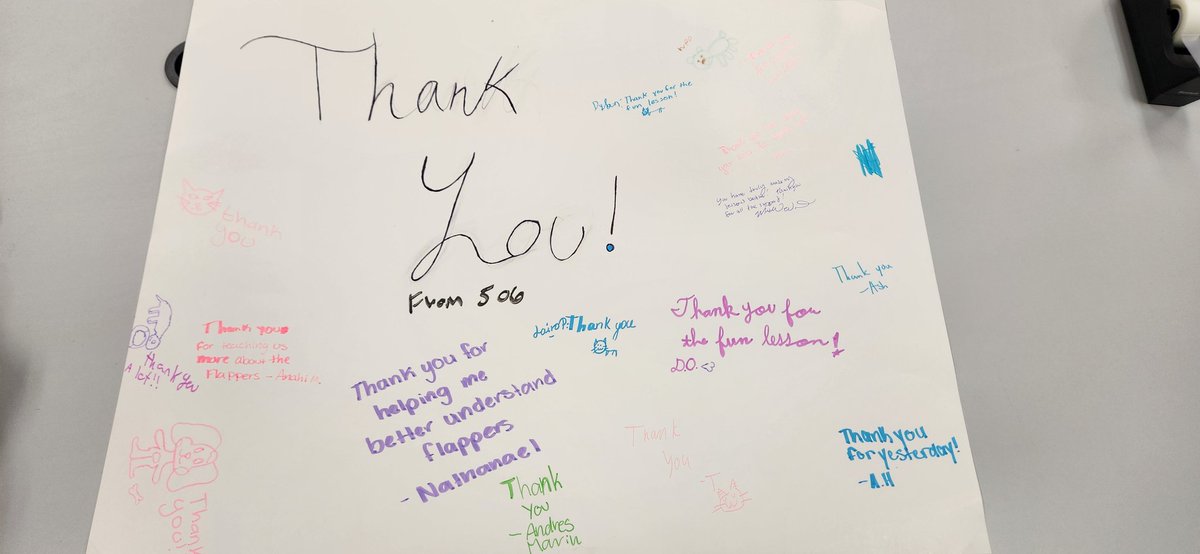 Thank
You!
From 506
Dylan: Thank you for the
fun lesson!
thank
you
Thank you
-Ash
Thank you
for teaching us
more about the
flappers - Anahi M.
Jairo P: Thank you
Thank you for
the fun lesson!
D.O. <3
Thank you
A lot!!
Thank you for
helping me
better understand
flappers
- Nathanael
Thank
you
Thank you
for yesterday!
-A.H
Thank
you
- Andres
Marin
Thank
you!